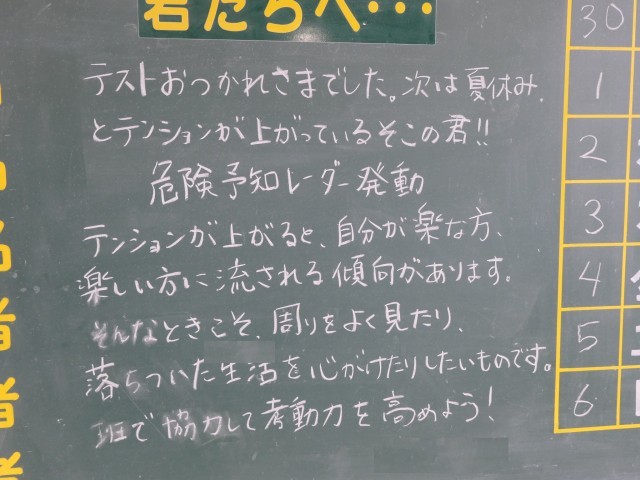 君たちへ…
テストおつかれさまでした。次は夏休み、
とテンションが上がっているそこの君!!
危険予知レーダー発動
テンションが上がると、自分が楽な方、
楽しい方に流される傾向があります。
そんなときこそ、周りをよく見たり、
落ちついた生活を心がけたりしたいものです。
班で協力して考動力を高めよう!
30
1
2
3
4
5
6
名
者
者
者